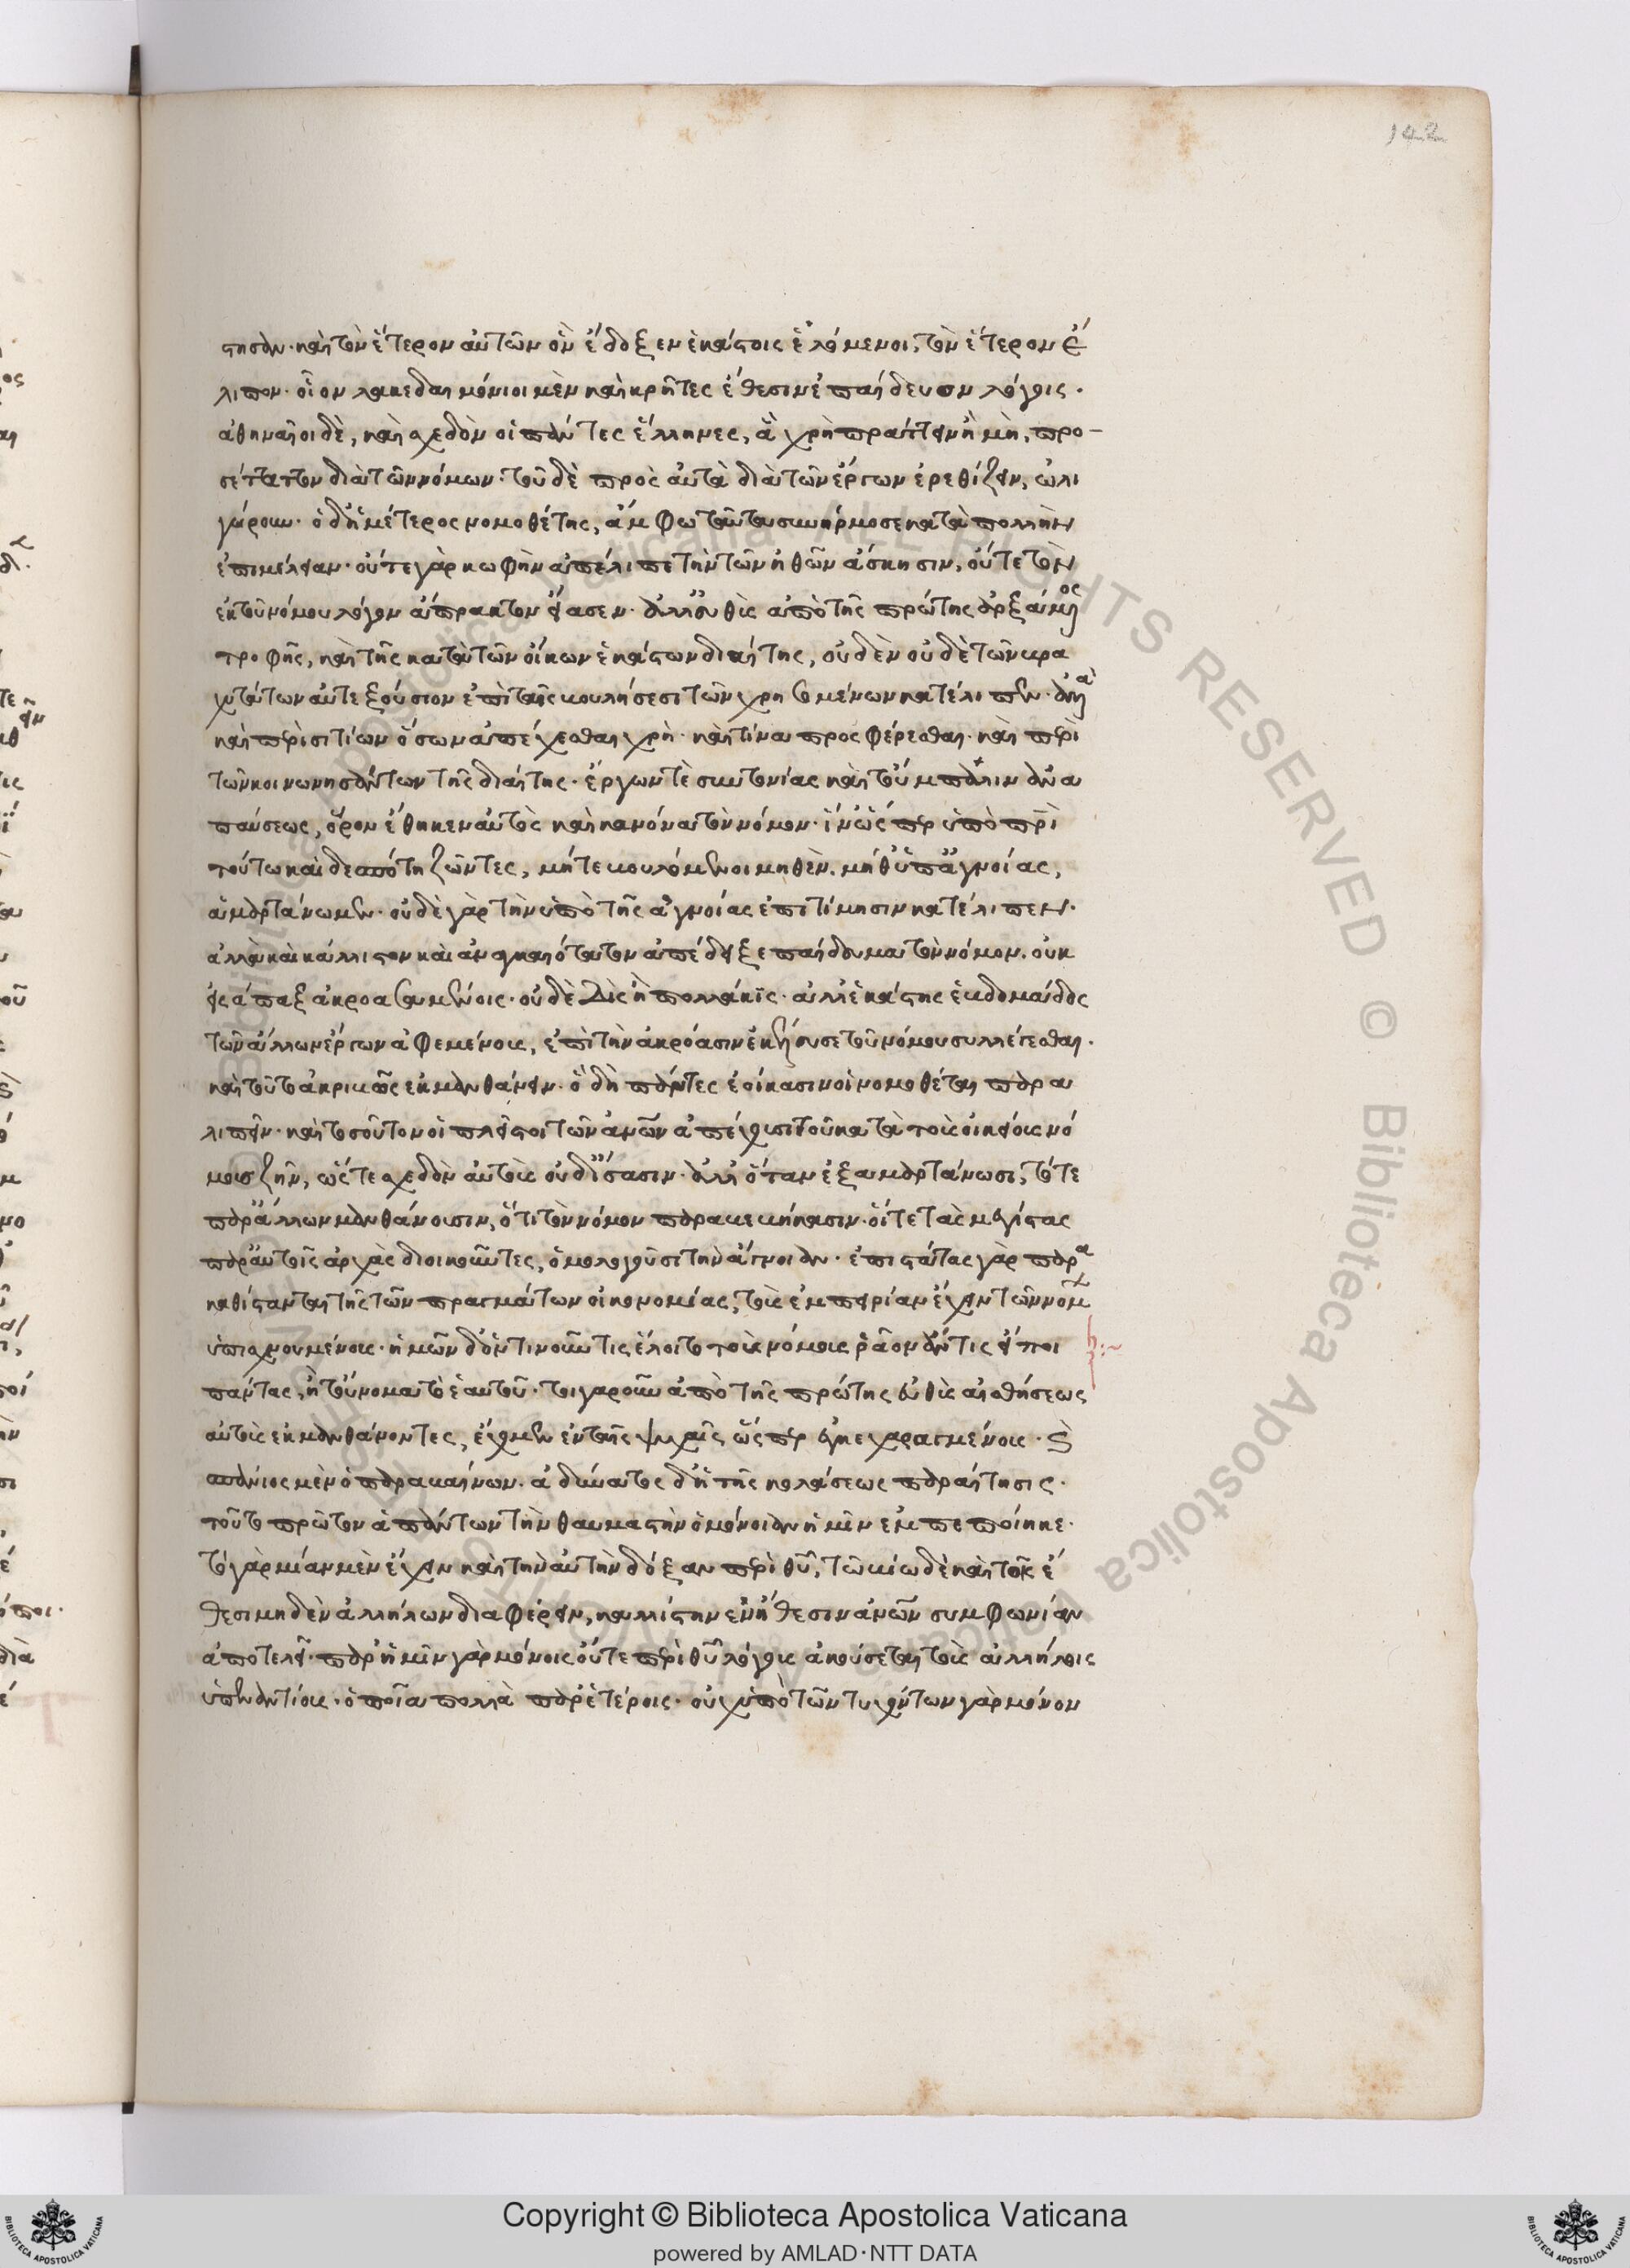 142
στησαν· καὶ τὸν ἕτερον αὐτῶν ὃν ἔδοξεν ἑκάστοις ἑλόμενοι, τὸν ἕτερον ἐ
λιπον· οἷον λακεδαιμόνιοι μὲν καὶ κρῆτες ἔθεσιν ἐπαίδευον λόγοις.
ἀθηναῖοι δὲ, καὶ σχεδὸν οἱ πάντες ἕλληνες, ἃ χρὴ πράττειν ἢ μὴ, προ-
σέταττον διὰ τῶν νόμων· τοῦ δὲ πρὸς αὐτὰ διὰ τῶν ἔργων ἐρεθίζειν, ὠλι
γώρουν· ὁ δ' ἡμέτερος νομοθέτης, ἄμφω ταῦτα συνήρμοσε κατὰ πολλὴν
ἐπιμέλειαν· οὔτε γὰρ κωφὴν ἀπέλιπε τὴν τῶν ἠθῶν ἄσκησιν, οὔτε τὸν
ἐκ τοῦ νόμου λόγον ἄπρακτον εἴασεν· ἀλλ' εὐθὺς ἀπὸ τῆς πρώτης ἀρξάμενος
τροφῆς, καὶ τῆς κατὰ τῶν οἴκων ἑκάστων διαίτης, οὐδὲν οὐδὲ τῶν βρα
χυτάτων αὐτεξούσιον ἐπὶ ταῖς βουλήσεσι τῶν χρησομένων κατέλιπεν·
καὶ περὶ σιτίων ὅσων ἀπέχεσθαι χρὴ· καὶ τίνα προσφέρεσθαι· καὶ περὶ
τῶν κοινωνησάντων τῆς διαίτης· ἔργων τὲ συντονίας καὶ τοὔμπαλιν ἀνα
παύσεως, ὅρον ἔθηκεν αὐτὸς καὶ κανόνα τὸν νόμον· ἵν' ὥσπερ ὑπὸ πατρὶ
τούτω καὶ δεσπότη ζῶντες, μήτε βουλόμενοι μηθὲν. μήθ' ὑπ' ἀγνοίας,
ἁμαρτάνωμεν· οὐδὲ γὰρ τὴν ὑπὸ τῆς ἀγνοίας ἐπιτίμησιν κατέλιπεν·
ἀλλὰ καὶ κάλλιστον καὶ ἀναγκαιότατον ἀπέδειξε παίδευμα τὸν νόμον. οὐκ
εἰς ἅπαξ ἀκροασομένοις· οὐδὲ δὶς ἢ πολλάκις· ἀλλ' ἑκάστης ἑβδομάδος
τῶν ἄλλων ἔργων ἀφεμένους, ἐπὶ τὴν ἀκρόασιν ἐκέλευσε τοῦ νόμου συλλέγεσθαι.
καὶ τοῦτο ἀκριβῶς ἐκμανθάνειν· ὃ δὴ πάντες ἐοίκασιν οἱ νομοθέται παρα
λιπεῖν· καὶ τοσοῦτον οἱ πλεῖστοι τῶν ἀνων ἀπέχουσι τοῦ κατὰ τοὺς οἰκείους νό
μους ζῆν, ὥστε σχεδὸν αὐτοὺς οὐδ' ἴσασιν· ἀλλ' ὅταν ἐξαμαρτάνωσι, τότε
παρ' ἄλλων μανθάνουσιν, ὅτι τὸν νόμον παραβεβήκασιν· οἵ τε τὰς μεγίστας
παρ' αὐτοῖς ἀρχὰς διοικοῦντες, ὁμολογοῦσι τὴν ἄγνοιαν· ἐπιστάτας γὰρ παρα
καθίστανται τῆς τῶν πραγμάτων οἰκονομίας, τοὺς ἐμπειρίαν ἔχειν τῶν νόμ
ὑπισχνουμένους· ἡμῶν δ' ὅντινοῦν τις ἔροιτο τοὺς νόμους ῥᾶον ἄν τις εἴποι
πάντας, ἢ τοὔνομα τὸ ἑαυτοῦ· τοιγαροῦν ἀπὸ τῆς πρώτης εὐθὺς αἰσθήσεως
αὐτοὺς ἐκμανθάνοντες, ἔχομεν ἐν ταῖς ψυχαῖς ὥσπερ ἐγκεχαραγμένους· καὶ
σπάνιος μὲν ὁ παραβαίνων. ἀδύνατος δ' ἡ τῆς κολάσεως παραίτησις.
τοῦτο πρῶτον ἁπάντων τὴν θαυμαστὴν ὁμόνοιαν ἡμῖν ἐμπεποίηκε.
τὸ γὰρ μίαν μὲν ἔχειν καὶ τὴν αὐτὴν δόξαν περὶ θυ, τῶ βίω δὲ καὶ τοῖς ἔ
θεσι μηδὲν ἀλλήλων διαφέρειν, καλλίστην ἐν ἤθεσιν ἀνων συμφωνίαν
ἀποτελεῖ· παρ' ἡμῖν γὰρ μόνοις οὔτε περὶ θυ λόγους ἀκούσεται τοὺς ἀλλήλοις
ὑπεναντίους· ὁποῖα πολλὰ παρ' ἑτέροις· οὐχ ὑπὸ τῶν τυχόντων γὰρ μόνον
Copyright © Biblioteca Apostolica Vaticana
powered by AMLAD·NTT DATA